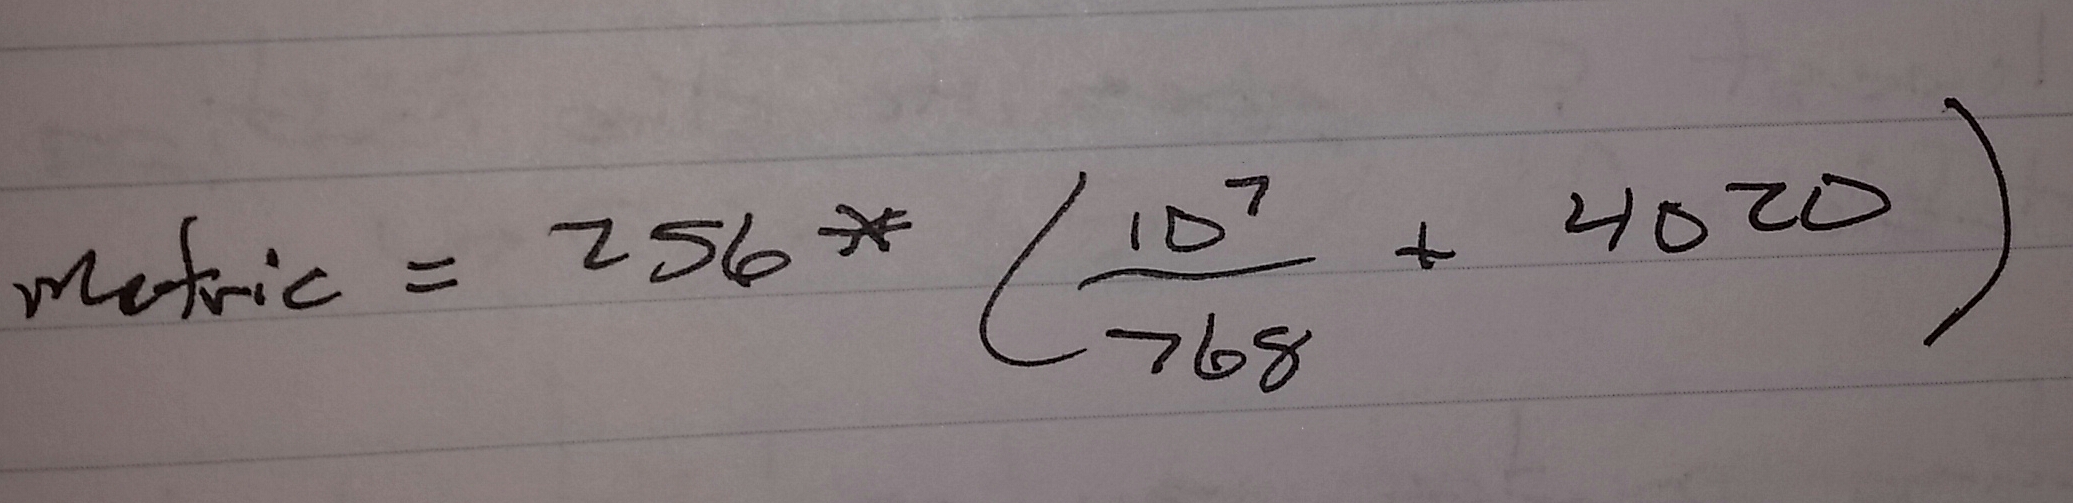 Metric = 256 * (10⁷/768 + 4020)